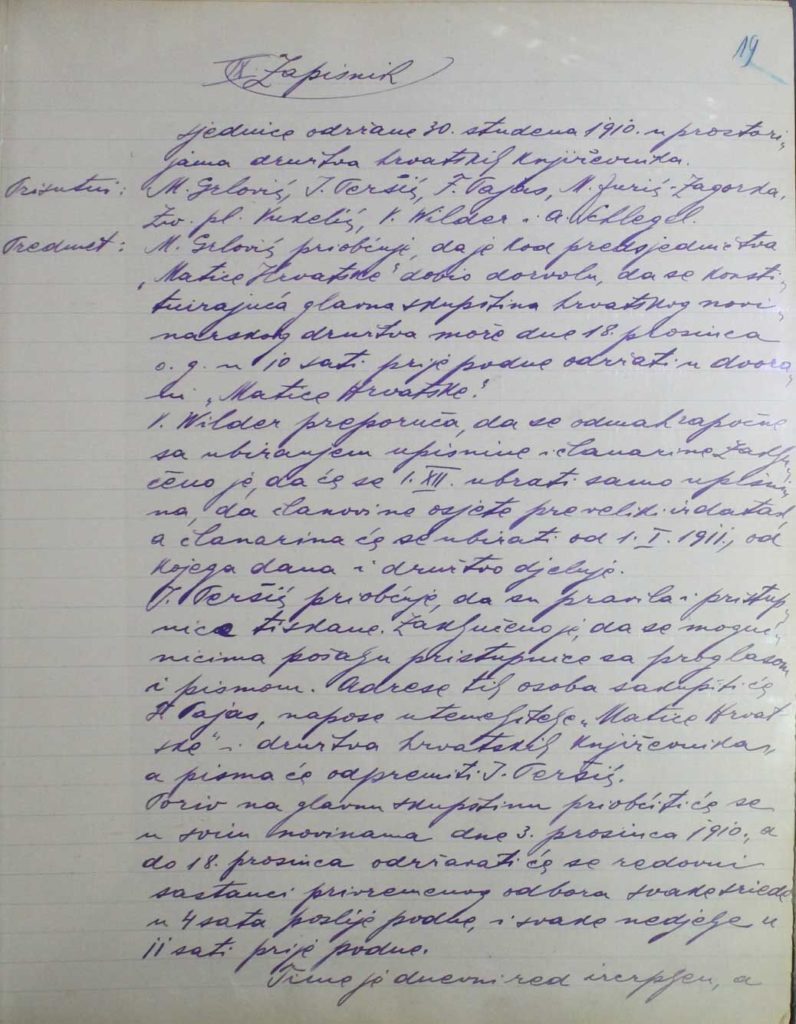 19
IX. Zapisnik
sjednice održane 30. studena 1910. u prostori-
jama društva hrvatskih književnika.
Prisutni: M. Grlović, J. Peršić, F. Pajas, M. Jurić-Zagorka,
Zv. pl. Vukelić, V. Wilder i A. Schlegel.
Predmet: M. Grlović priobćuje, da je kod predsjedništva
„Matice Hrvatske" dobio dozvolu, da se konsti-
tuirajuća glavna skupština hrvatskog novi-
narskog društva može dne 18. prosinca
o. g. u 10 sati prije podne održati u dvora-
ni „Matice Hrvatske".
V. Wilder preporuča, da se odmah započne
sa ubiranjem upisnine i članarine. Zaklju-
čeno je, da će se 1. XII. ubrati samo upisni-
na, da članovi ne osjete preveliki izdatak
a članarina će se ubirati od 1. I. 1911., od
kojega dana i društvo djeluje.
J. Peršić priobćuje, da su pravila i pristup-
nice tiskane. Zaključeno je, da se moguć-
nicima pošalju pristupnice sa proglasom
i pismom. Adrese tih osoba sakupiti će
F. Pajas, napose utemeljitelje „Matice Hrvat-
ske" i društva hrvatskih književnika,
a pisma će odpremiti J. Peršić.
Poziv na glavnu skupštinu priobćiti će se
u svim novinama dne 3. prosinca 1910., a
do 18. prosinca održavati će se redovni
sastanci privremenog odbora svake sriede
u 4 sata poslije podne, i svake nedjelje u
11 sati prije podne.
Time je dnevni red izcrpljen, a